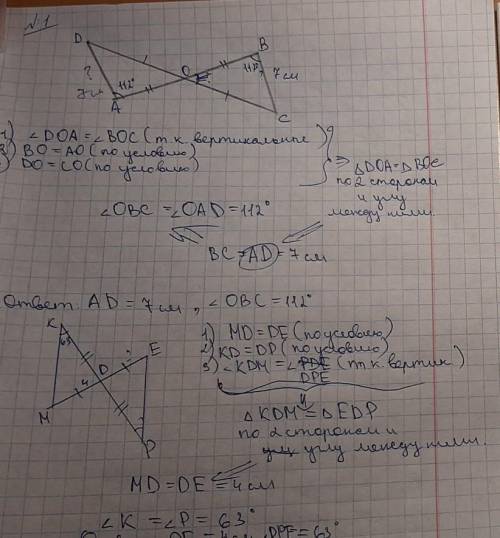 №1
D
O
B
?
7см
112°
112°
7 см
A
C
1) ∠DOA = ∠BOC (т.к. вертикальные)
2) BO = AO (по условию)
DO = CO (по условию)
⇒ △DOA = △BOC
по 2 сторонам
и углу
между ними.
∠OBC = ∠OAD = 112°
BC = AD = 7 см
Ответ: AD = 7 см, ∠OBC = 112°
K
63
E
?
D
4
M
P
1) MD = DE (по условию)
2) KD = DP (по условию)
3) ∠KDM = ∠PDE (т.к. вертик)
DPE
△KDM = △EDP
по 2 сторонам и
углу между ними.
MD = DE = 4 см
∠K = ∠P = 63°
DE = 4см, DPE = 63°